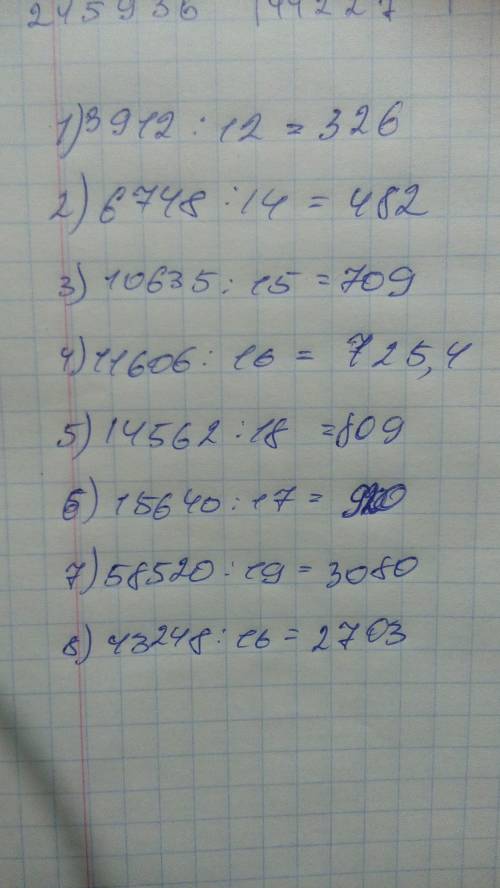 245936 44227
1) 3912 : 12 = 326
2) 6748 : 14 = 482
3) 10635 : 15 = 709
4) 11606 : 16 = 725,4
5) 14562 : 18 = 809
6) 15640 : 17 = 920
7) 58520 : 19 = 3080
8) 43248 : 16 = 2703